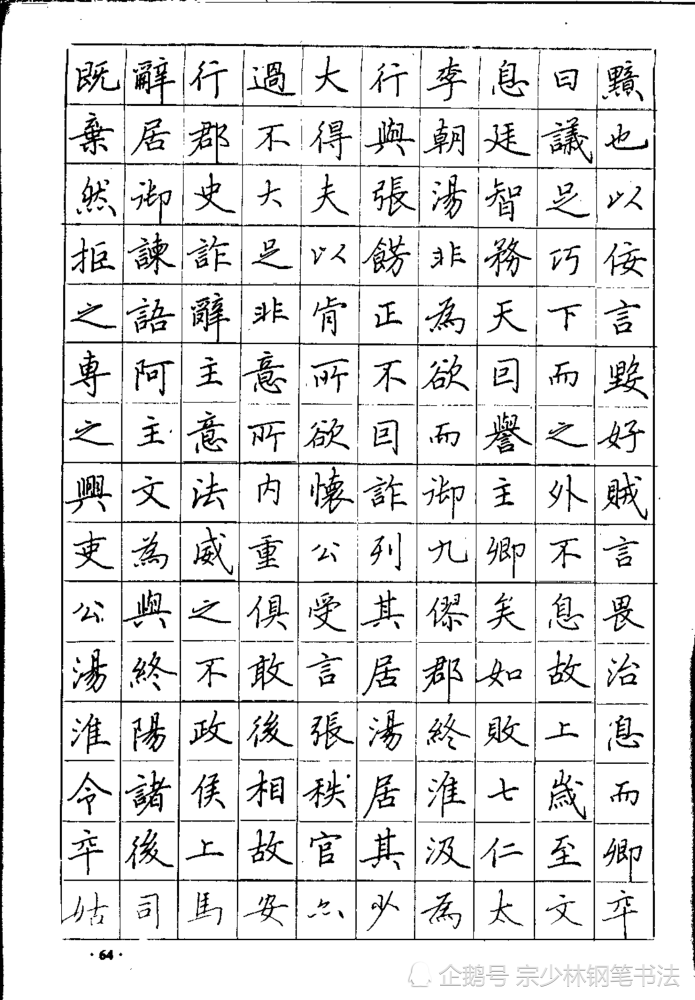 既辭行過大行李息曰黯
棄居郡不得與朝廷議也
然御史大夫張湯智足以
拒諫詐足以餝非務巧佞
之語辭非肯正為天下言
專阿主意所不欲回而毀
之主意所欲回而譽之好
興文法內懷詐御主外賊
吏為威重公列九卿不言
公與之俱受其僇矣息畏
湯終不敢言居郡如故治
淮陽政後張湯終敗上息
令諸侯相秩居淮七歲而
卒後上故官其汲仁至卿
姑司馬安亦少為太文卒
·64·
企鹅号 宗少林钢笔书法